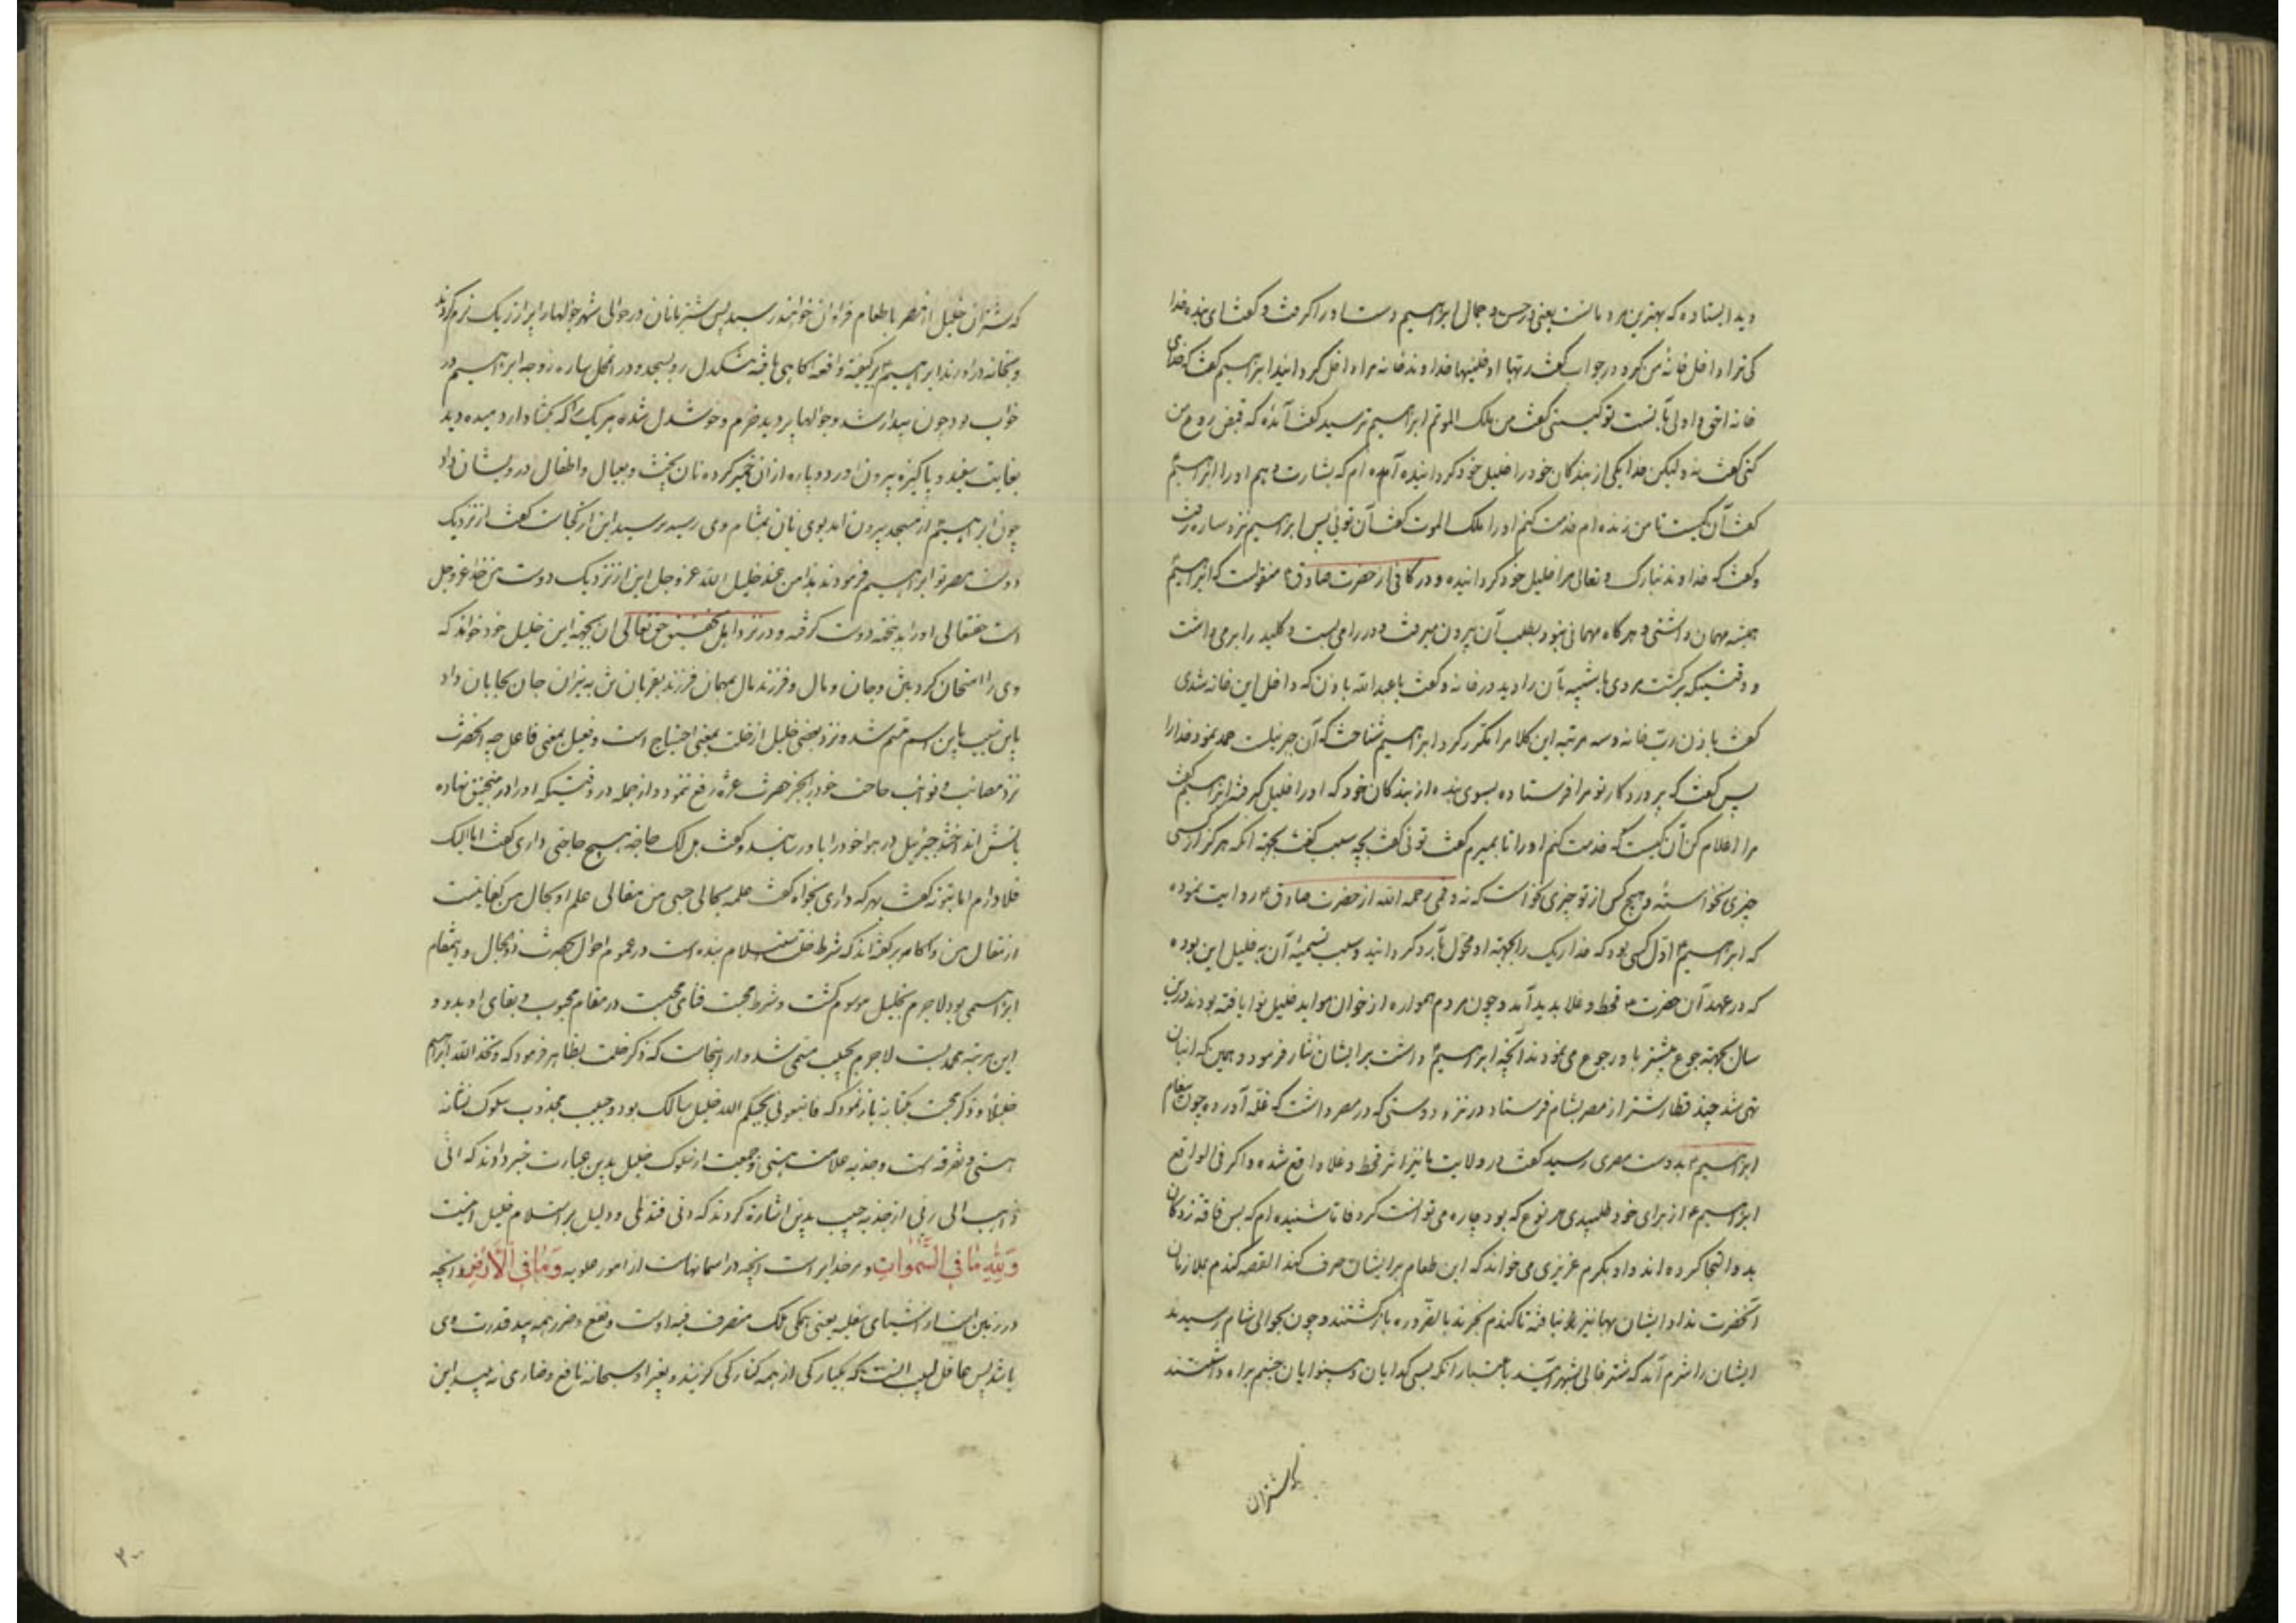 دید ایستاده که بهترین مردمانست یعنی در حسن و جمال ابراهیم دست او را گرفت و گفت ای بنده خدا
کی ترا داخل خانهٔ من کرد در جواب گفت ربها ادخلنیها خداوند خانه مرا داخل گردانید ابراهیم گفت که خدای
خانه احق و اولی بآنست تو کیستی گفت من ملک الموتم ابراهیم ترسید گفت آمدهٔ که قبض روح من
کنی گفت نه و لیکن خدا یکی از بندکان خود را خلیل خود کردانیده آمده ام که بشارت دهم او را ابراهیم
گفت آن کیست تا من زنده ام خدمت کنم او را ملک الموت گفت آن توئی پس ابراهیم نزد ساره رفت
و گفت که خداوند تبارک و تعالی مرا خلیل خود کردانیده و در کافی از حضرت صادق منقولست که ابراهیم
همیشه مهمان داشتی و هرگاه مهمانی نبود بطلب آن بیرون میرفت و در را می بست و کلید را برمی داشت
و وقتیکه برگشت مردی یا شبیه بآن را دید در خانه و گفت یا عبد الله باذن که داخل این خانه شدی
گفت باذن رب خانه و سه مرتبه این کلام را مکرر کرد ابراهیم شناخت که آن جبرئیلست حمد نمود خدا را
پس گفت که پروردکار تو مرا فرستاده بسوی بندهٔ از بندکان خود که او را خلیل گرفته ابراهیم گفت
مرا اعلام کن آن کیست که خدمت کنم او را تا بمیرم گفت توئی گفت بچه سبب گفت بجهة انکه هرگز از کسی
چیزی نخواستهٔ و هیچ کس از تو چیزی نخواست که نه و قمی رحمه الله از حضرت صادق روایت نموده
که ابراهیم اول کسی بود که خدا ریک را بجهة او محول بآرد کردانید و سبب تسمیهٔ آن به خلیل این بوده
که در عهد آن حضرت قحط و غلا پدید آمد و چون مردم همواره از خوان مواید خلیل نوا یافته بودند درین
سال بجهة جوع بیشتر باو رجوع می نمودند آنچه ابراهیم داشت بر ایشان نثار فرمود و همین که انبان
تهی شد چند قطار شتر از مصر بشام فرستاد در نزد دوستی که در مصر داشت که غله آورده چون پیغام
ابراهیم بدوست مصری رسید گفت در ولایت ما نیز اثر قحط و غلا واقع شده و اگر فی الواقع
ابراهیم از برای خود طلبیدی هر نوع که بود چاره می توانست کرد فاما شنیده ام که بس فاقه زدکان
بدو التجا کرده اند و او بکرم عزیزی می خواند که این طعام بر ایشان صرف کند القصه کندم بملازمان
آنحضرت نداد و ایشان بهیچ نیز نیافته تا گندم بخرند بالضروره بازگشتند و چون بحوالی شام رسیدند
ایشان را شرم آمد که شتر خالی بشهر آیند باعتبار انکه بسی گدایان و بینوایان چشم براه داشتند
که شتران
که شتران خلیل از مصر با طعام فراوان خواهند رسید پس شتربانان در حوالی شهر جوالها را پر از ریک نرم کردند
و بخانه در اوردند ابراهیم بر کیفیة واقعه اگاهی یافته تنگدل رو بمسجد و در انحال ساره زوجه ابراهیم در
خواب بود چون بیدار شد و جوالها پر دید خرم و خوشدل شده هر یک را که بگشاد ارد میده دید
بغایت سفید و پاکیزه بیرون اورد و پارهٔ از ان خمیر کرده نان پخت و بعیال و اطفال درویشان داد
چون ابراهیم از مسجد بیرون امد بوی نان بمشام وی رسید پرسید این از کجاست گفت از نزدیک
دوست مصر تو ابراهیم فرمودند هذا من عند خلیل الله عز و جل این از نزدیک دوست من خدا عز و جل
است حقتعالی او را بدینجهة دوست گرفته و در نزد اهل تحقیق حق تعالی ان بجهة این خلیل خود خواند که
وی را امتحان کرد بتن و جان و مال و فرزند مال بمهمان فرزند بقربان تن به نیران جان بجانان داد
باین سبب باین اسم متسم شد و نزد بعضی خلیل از خلت بمعنی احتیاج است و فعیل بمعنی فاعل چه انحضرت
نزد مصائب و نوائب حاجت خود را بجز حضرت عزة رفع ننمود و از جمله در وقتیکه او را در منجنیق نهاده
بآتش انداختند جبرئیل در هوا خود را باو رسانید و گفت هل لک حاجة هیچ حاجتی داری گفت اما الیک
فلا دارم اما بتو نه گفت بهر که داری بخواه گفت علمه بحالی حسبی من مقالی علم او بحال من کفایتست
از مقال من و اکابر گفته اند که شرط خلت استسلام بنده است در عموم احوال بحضرت ذوالجلال و این مقام
ابراهیمی بود لاجرم بخلیل موسوم گشت و شرط محبت فنای محبت در مقام محبوب و بقای او بدو و
این مرتبه محمدیست لاجرم بحبیب مسمی شد و از اینجاست که ذکر خلت بظاهر فرمود که و اتخذ الله ابراهیم
خلیلا و ذکر محبت بکنایه باز نمود که فاتبعونی یحببکم الله خلیل سالک بود و حبیب مجذوب سلوک نشانه
هستی و تفرقه است و جذبه علامت نیستی و جمعیت از سلوک خلیل بدین عبارت خبر دادند که انی
ذاهب الی ربی از جذبه حبیب بدین اشارة کردند که دنی فتدلی و دلیل بر استسلام خلیل اینست
وَلِلّٰهِ مٰا فِی السَّمٰوٰاتِ و مر خدایراست انچه در اسمانهاست از امور علویه وَ مٰا فِی الْاَرْضِ و انچه
در زمین است از اشیای سفلیه یعنی همگی ملک متصرف فیه اوست و نفع و ضرر همه بید قدرت وی
باشد پس عاقل لبیب انست که بیکبارگی از همه کنارگی گزیند و بغیر او سبحانه نافع و ضاری نه بیند این
۲۰۰